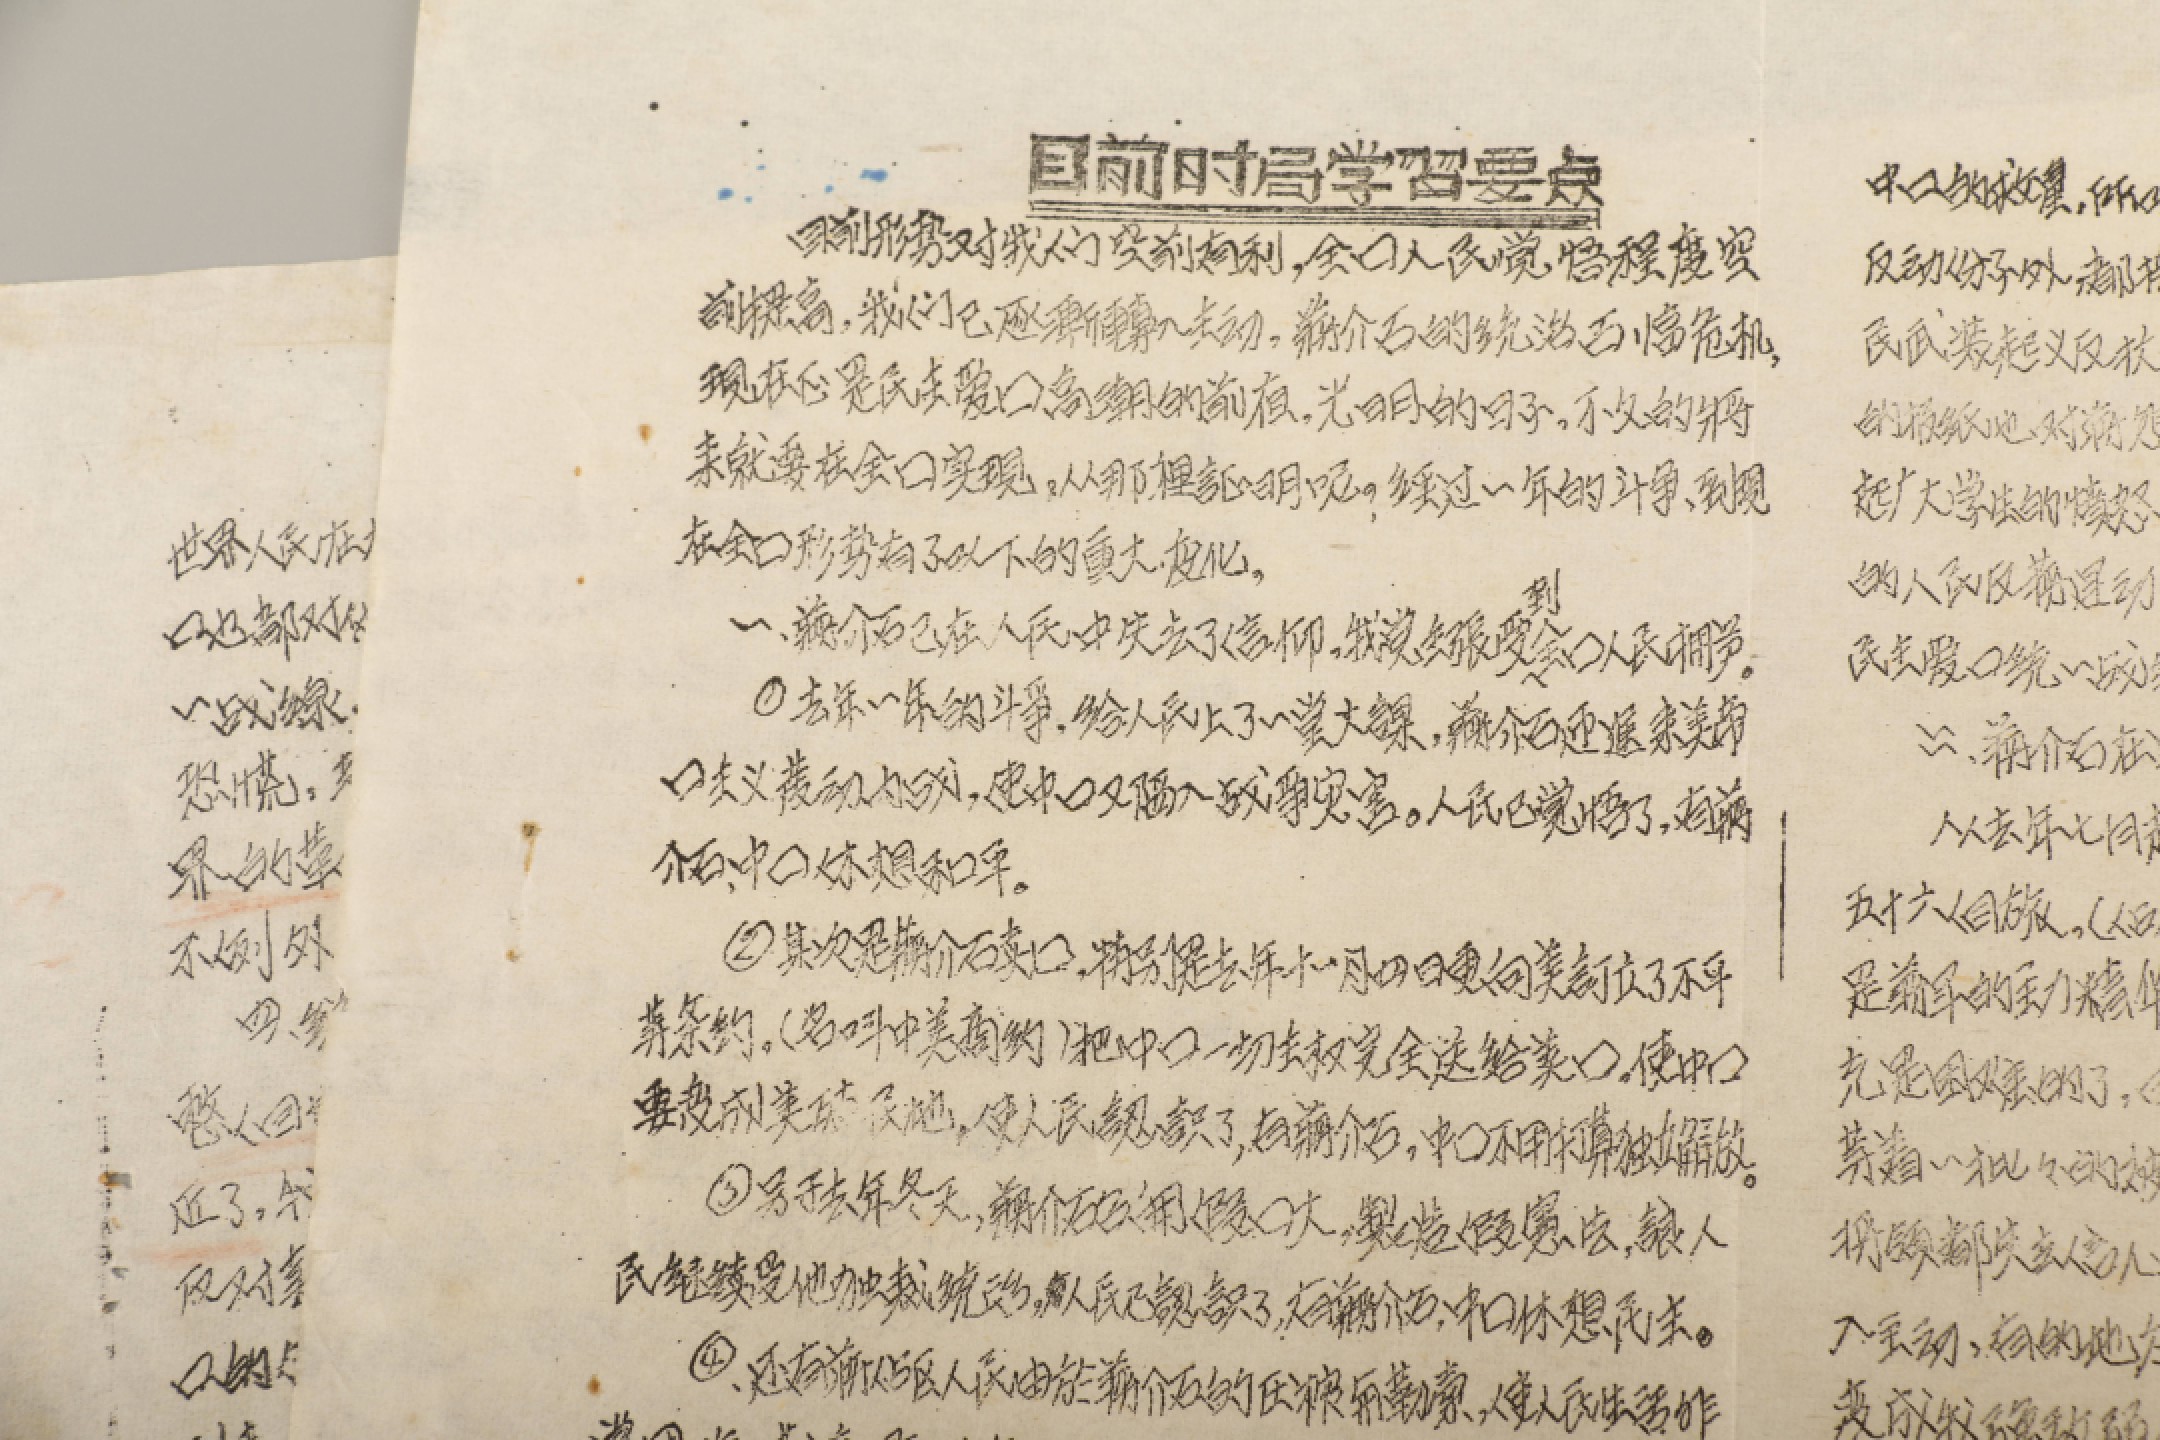 目前时局学習要点
目前形势对我们空前有利,全口人民觉悟程度空
前提高,我们已逐漸轉入主动,蔣介石的统治百川危机,
现在正是民主爱口高潮的前夜,光明的日子,不久的將
来就要在全口实现,从那裡証明呢?经过一年的斗争、到现
在全口形势有了以下的重大变化。
一、蔣介石已在人民中失去了信仰,我党主張受到全口人民拥护。
①去年一年的斗爭,给人民上了一堂大課,蔣介石迎進来美帝
口主义發动内战,使中口又陷入战爭灾害。人民已觉悟了,有蔣
介石,中口休想和平。
②其次是蔣介石卖口,特别是去年十一月四日更向美訂立了不平
等条约。(名叫中美商约)把中口一切主权完全送给美口,使中口
要变成美 民地,使人民認識了,有蔣介石,中口不用打算独立解放。
③另于去年冬天,蔣介石召用假口大,製造假憲法,讓人
民継续受他独裁统治,人民已認識了,有蔣介石,中口休想民主。
④、还有蔣佔区人民由於蔣介石的压榨勒索,使人民生活非
中口的救星,所以
反动份子外,都
民武装起义反抗
的报纸也对蔣
起广大学生的愤怒
的人民反蔣運动
民主爱口统一战
二、蔣介石在
从去年七月
五十六個旅。(
是蔣军的主力精
充是困难的了,
等着一批々的被
将領都失去信心
入主动,有的地方
变成我强敌弱
世界人民在
口也都对
一战缐,
恐慌。
界的革
不例外
四、
整個
近了,
反对
口的